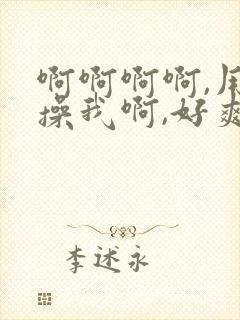 啊啊啊啊,
操我啊,好爽
李述永